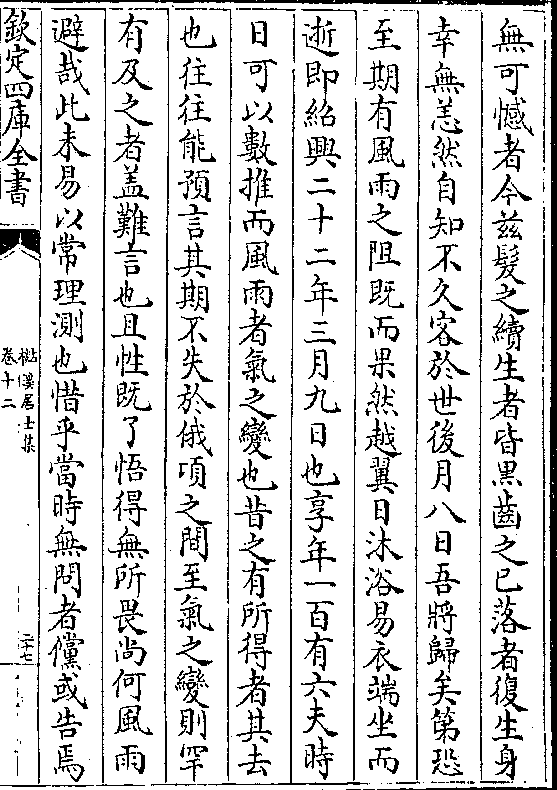 無可憾者今兹髮之續生者皆黒齒之已落者復生身
幸無恙然自知不久客於世後月八日吾將歸矣第恐
至期有風雨之阻既而果然越翼日沐浴易衣端坐而
逝即紹興二十二年三月九日也享年一百有六夫時
日可以數推而風雨者氣之變也昔之有所得者其去
也往往能預言其期不失於俄項之間至氣之變則罕
有及之者盖難言也且性既了悟得無所畏尚何風雨
避哉此未易以常理測也惜乎當時無問者儻或告焉
欽定四庫全書
樵溪居士集
卷十二
二十七